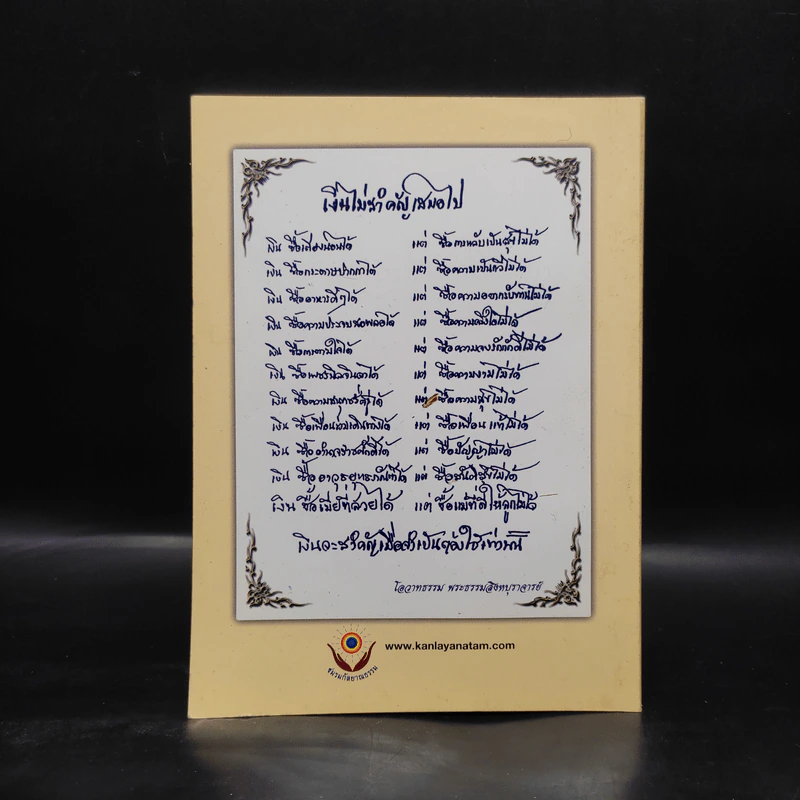 เงินไม่สำคัญเสมอไป
เงิน ซื้อเตียงนอนได้ แต่ ซื้อการหลับเป็นสุขไม่ได้
เงิน ซื้อกระดาษปากกาได้ แต่ ซื้อความเป็นกวีไม่ได้
เงิน ซื้ออาหารดีๆได้ แต่ ซื้อความอยากรับทานไม่ได้
เงิน ซื้อความประจบสอพลอได้ แต่ ซื้อความจริงใจไม่ได้
เงิน ซื้อการตามใจได้ แต่ ซื้อความจงรักภักดีไม่ได้
เงิน ซื้อเพชรนิลจินดาได้ แต่ ซื้อความงามไม่ได้
เงิน ซื้อความสนุกชั่วครู่ได้ แต่ ซื้อความสุขไม่ได้
เงิน ซื้อเพื่อนร่วมเดินทางได้ แต่ ซื้อเพื่อนแท้ไม่ได้
เงิน ซื้ออำนาจราชศักดิ์ได้ แต่ ซื้อปัญญาไม่ได้
เงิน ซื้ออาวุธยุทธภัณฑ์ได้ แต่ ซื้อสันติสุขไม่ได้
เงิน ซื้อเมียที่สวยได้ แต่ ซื้อแม่ที่ดีให้ลูกไม่ได้
เงินจะสำคัญเมื่อจำเป็นต้องใช้เท่านั้น
โอวาทธรรม พระธรรมสิงหบุราจารย์
www.kanlayanatam.com
ชมรมกัลยาณธรรม